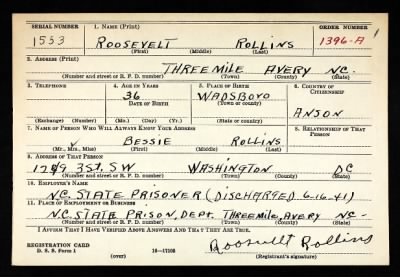 SERIAL NUMBER 1. NAME (Print) ORDER NUMBER
1553 ROOSEVELT ROLLINS 1396-A
(First) (Middle) (Last)
2. ADDRESS (Print)
THREEMILE AVERY NC.
(Number and street or R. F. D. number) (Town) (County) (State)
3. TELEPHONE 4. AGE IN YEARS 5. PLACE OF BIRTH 6. COUNTRY OF CITIZENSHIP
36 WADSBOVO
DATE OF BIRTH (Town or county)
ANSON
(Exchange) (Number) (Mo.) (Day) (Yr.) (State or country)
7. NAME OF PERSON WHO WILL ALWAYS KNOW YOUR ADDRESS 8. RELATIONSHIP OF THAT PERSON
BESSIE ROLLINS
(Mr., Mrs., Miss) (First) (Middle) (Last)
9. ADDRESS OF THAT PERSON
3 St. SW WASHINGTON DC
(Number and street or R. F. D. number) (Town) (County) (State)
10. EMPLOYER'S NAME
N.C. STATE PRISONER (DISCHARGED 6-16-41)
11. PLACE OF EMPLOYMENT OR BUSINESS
N.C. STATE PRISON, DEPT. THREEMILE, AVERY NC-
(Number and street or R. F. D. number) (Town) (County) (State)
I AFFIRM THAT I HAVE VERIFIED ABOVE ANSWERS AND THAT THEY ARE TRUE.
REGISTRATION CARD
D. S. S. Form 1 16—17105 Roosevelt Rollins
(over) (Registrant's signature)